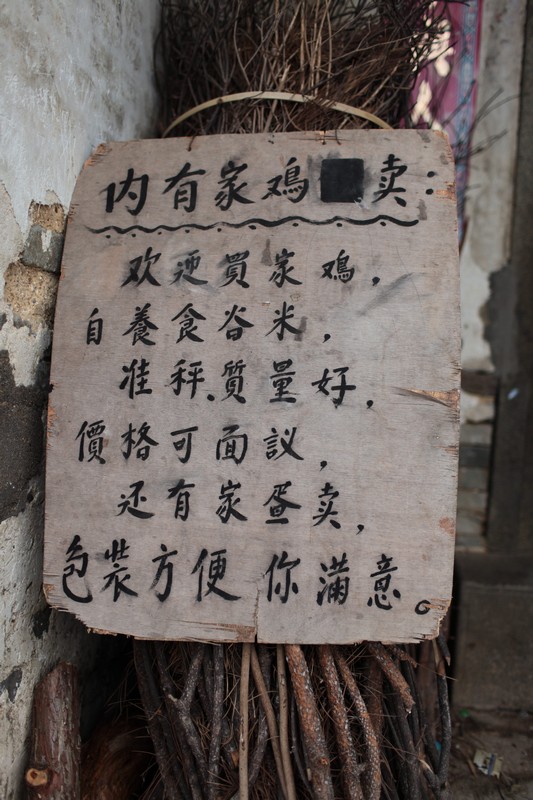 内有家鸡卖:
欢迎買家鸡,
自養食谷米,
准秤.質量好,
價格可面議,
还有家蛋卖,
包装方便 你满意。